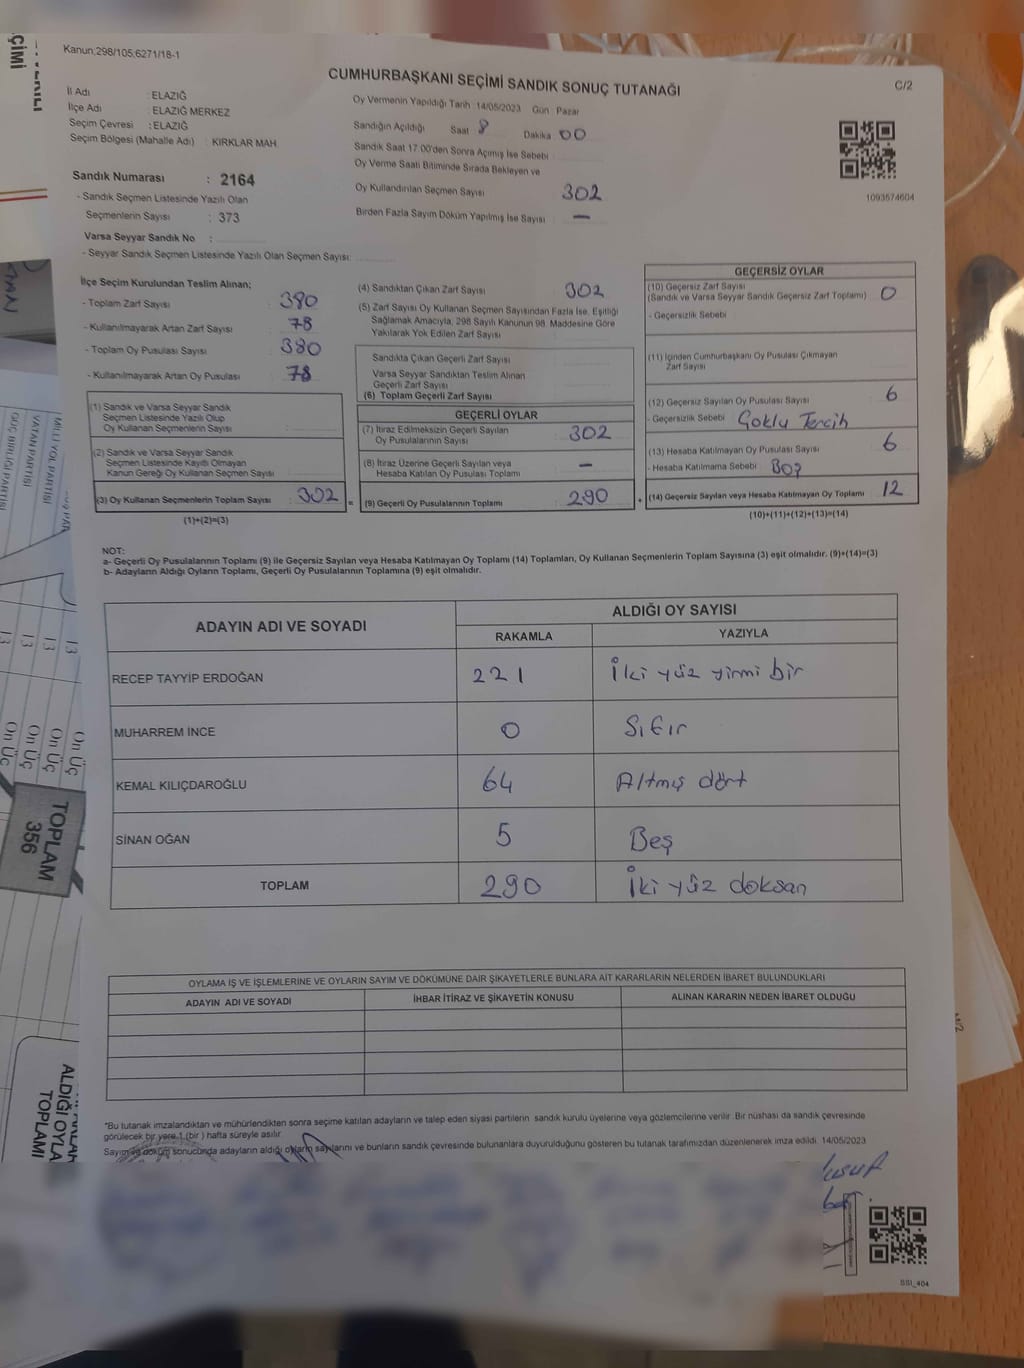 Kanun:298/105,6271/18-1
CUMHURBAŞKANI SEÇİMİ SANDIK SONUÇ TUTANAĞI
C/2
İl Adı : ELAZIĞ
İlçe Adı : ELAZIĞ MERKEZ
Seçim Çevresi : ELAZIĞ
Seçim Bölgesi (Mahalle Adı) : KIRKLAR MAH.
Sandık Numarası : 2164
- Sandık Seçmen Listesinde Yazılı Olan
Seçmenlerin Sayısı : 373
Varsa Seyyar Sandık No :
- Seyyar Sandık Seçmen Listesinde Yazılı Olan Seçmen Sayısı:
Oy Vermenin Yapıldığı Tarih : 14/05/2023 Gün : Pazar
Sandığın Açıldığı Saat 8 Dakika 00
Sandık Saat 17.00'den Sonra Açılmış İse Sebebi :
Oy Verme Saati Bitiminde Sırada Bekleyen ve
Oy Kullandırılan Seçmen Sayısı 302
Birden Fazla Sayım Döküm Yapılmış İse Sayısı —
1093574604
İlçe Seçim Kurulundan Teslim Alınan;
- Toplam Zarf Sayısı : 380
- Kullanılmayarak Artan Zarf Sayısı : 78
- Toplam Oy Pusulası Sayısı : 380
- Kullanılmayarak Artan Oy Pusulası : 78
(1) Sandık ve Varsa Seyyar Sandık
Seçmen Listesinde Yazılı Olup
Oy Kullanan Seçmenlerin Sayısı :
(2) Sandık ve Varsa Seyyar Sandık
Seçmen Listesinde Kayıtlı Olmayan
Kanun Gereği Oy Kullanan Seçmen Sayısı :
(3) Oy Kullanan Seçmenlerin Toplam Sayısı : 302 =
(1)+(2)=(3)
(4) Sandıktan Çıkan Zarf Sayısı : 302
(5) Zarf Sayısı Oy Kullanan Seçmen Sayısından Fazla İse, Eşitliği
Sağlamak Amacıyla, 298 Sayılı Kanunun 98. Maddesine Göre
Yakılarak Yok Edilen Zarf Sayısı :
Sandıkta Çıkan Geçerli Zarf Sayısı :
Varsa Seyyar Sandıktan Teslim Alınan
Geçerli Zarf Sayısı :
(6) Toplam Geçerli Zarf Sayısı
GEÇERLİ OYLAR
(7) İtiraz Edilmeksizin Geçerli Sayılan
Oy Pusulalarının Sayısı : 302
(8) İtiraz Üzerine Geçerli Sayılan veya
Hesaba Katılan Oy Pusulası Toplamı : —
(9) Geçerli Oy Pusulalarının Toplamı : 290 +
GEÇERSİZ OYLAR
(10) Geçersiz Zarf Sayısı
(Sandık ve Varsa Seyyar Sandık Geçersiz Zarf Toplamı) : 0
- Geçersizlik Sebebi :
(11) İçinden Cumhurbaşkanı Oy Pusulası Çıkmayan
Zarf Sayısı
(12) Geçersiz Sayılan Oy Pusulası Sayısı : 6
- Geçersizlik Sebebi : Çoklu Tercih
(13) Hesaba Katılmayan Oy Pusulası Sayısı : 6
- Hesaba Katılmama Sebebi : Boş
(14) Geçersiz Sayılan veya Hesaba Katılmayan Oy Toplamı : 12
(10)+(11)+(12)+(13)=(14)
NOT:
a- Geçerli Oy Pusulalarının Toplamı (9) ile Geçersiz Sayılan veya Hesaba Katılmayan Oy Toplamı (14) Toplamları, Oy Kullanan Seçmenlerin Toplam Sayısına (3) eşit olmalıdır. (9)+(14)=(3)
b- Adayların Aldığı Oyların Toplamı, Geçerli Oy Pusulalarının Toplamına (9) eşit olmalıdır.
ADAYIN ADI VE SOYADI ALDIĞI OY SAYISI
RAKAMLA YAZIYLA
RECEP TAYYİP ERDOĞAN 221 İki yüz yirmi bir
MUHARREM İNCE 0 Sıfır
KEMAL KILIÇDAROĞLU 64 Altmış dört
SİNAN OĞAN 5 Beş
TOPLAM 290 İki yüz doksan
OYLAMA İŞ VE İŞLEMLERİNE VE OYLARIN SAYIM VE DÖKÜMÜNE DAİR ŞİKAYETLERLE BUNLARA AİT KARARLARIN NELERDEN İBARET BULUNDUKLARI
ADAYIN ADI VE SOYADI İHBAR İTİRAZ VE ŞİKAYETİN KONUSU ALINAN KARARIN NEDEN İBARET OLDUĞU
*Bu tutanak imzalandıktan ve mühürlendikten sonra seçime katılan adayların ve talep eden siyasi partilerin sandık kurulu üyelerine veya gözlemcilerine verilir. Bir nüshası da sandık çevresinde
görülecek bir yere 1 (bir ) hafta süreyle asılır.
Sayım ve döküm sonucunda adayların aldığı oyların sayılarını ve bunların sandık çevresinde bulunanlara duyurulduğunu gösteren bu tutanak tarafımızdan düzenlenerek imza edildi. 14/05/2023
SSI_404
MİLLİ YOL PARTİSİ
VATAN PARTİSİ
GÜÇ BİRLİĞİ PARTİSİ
13
13
13
13
On Üç
On Üç
On Üç
On Üç
TOPLAM
356
ALDIĞI OYLA
TOPLAMI